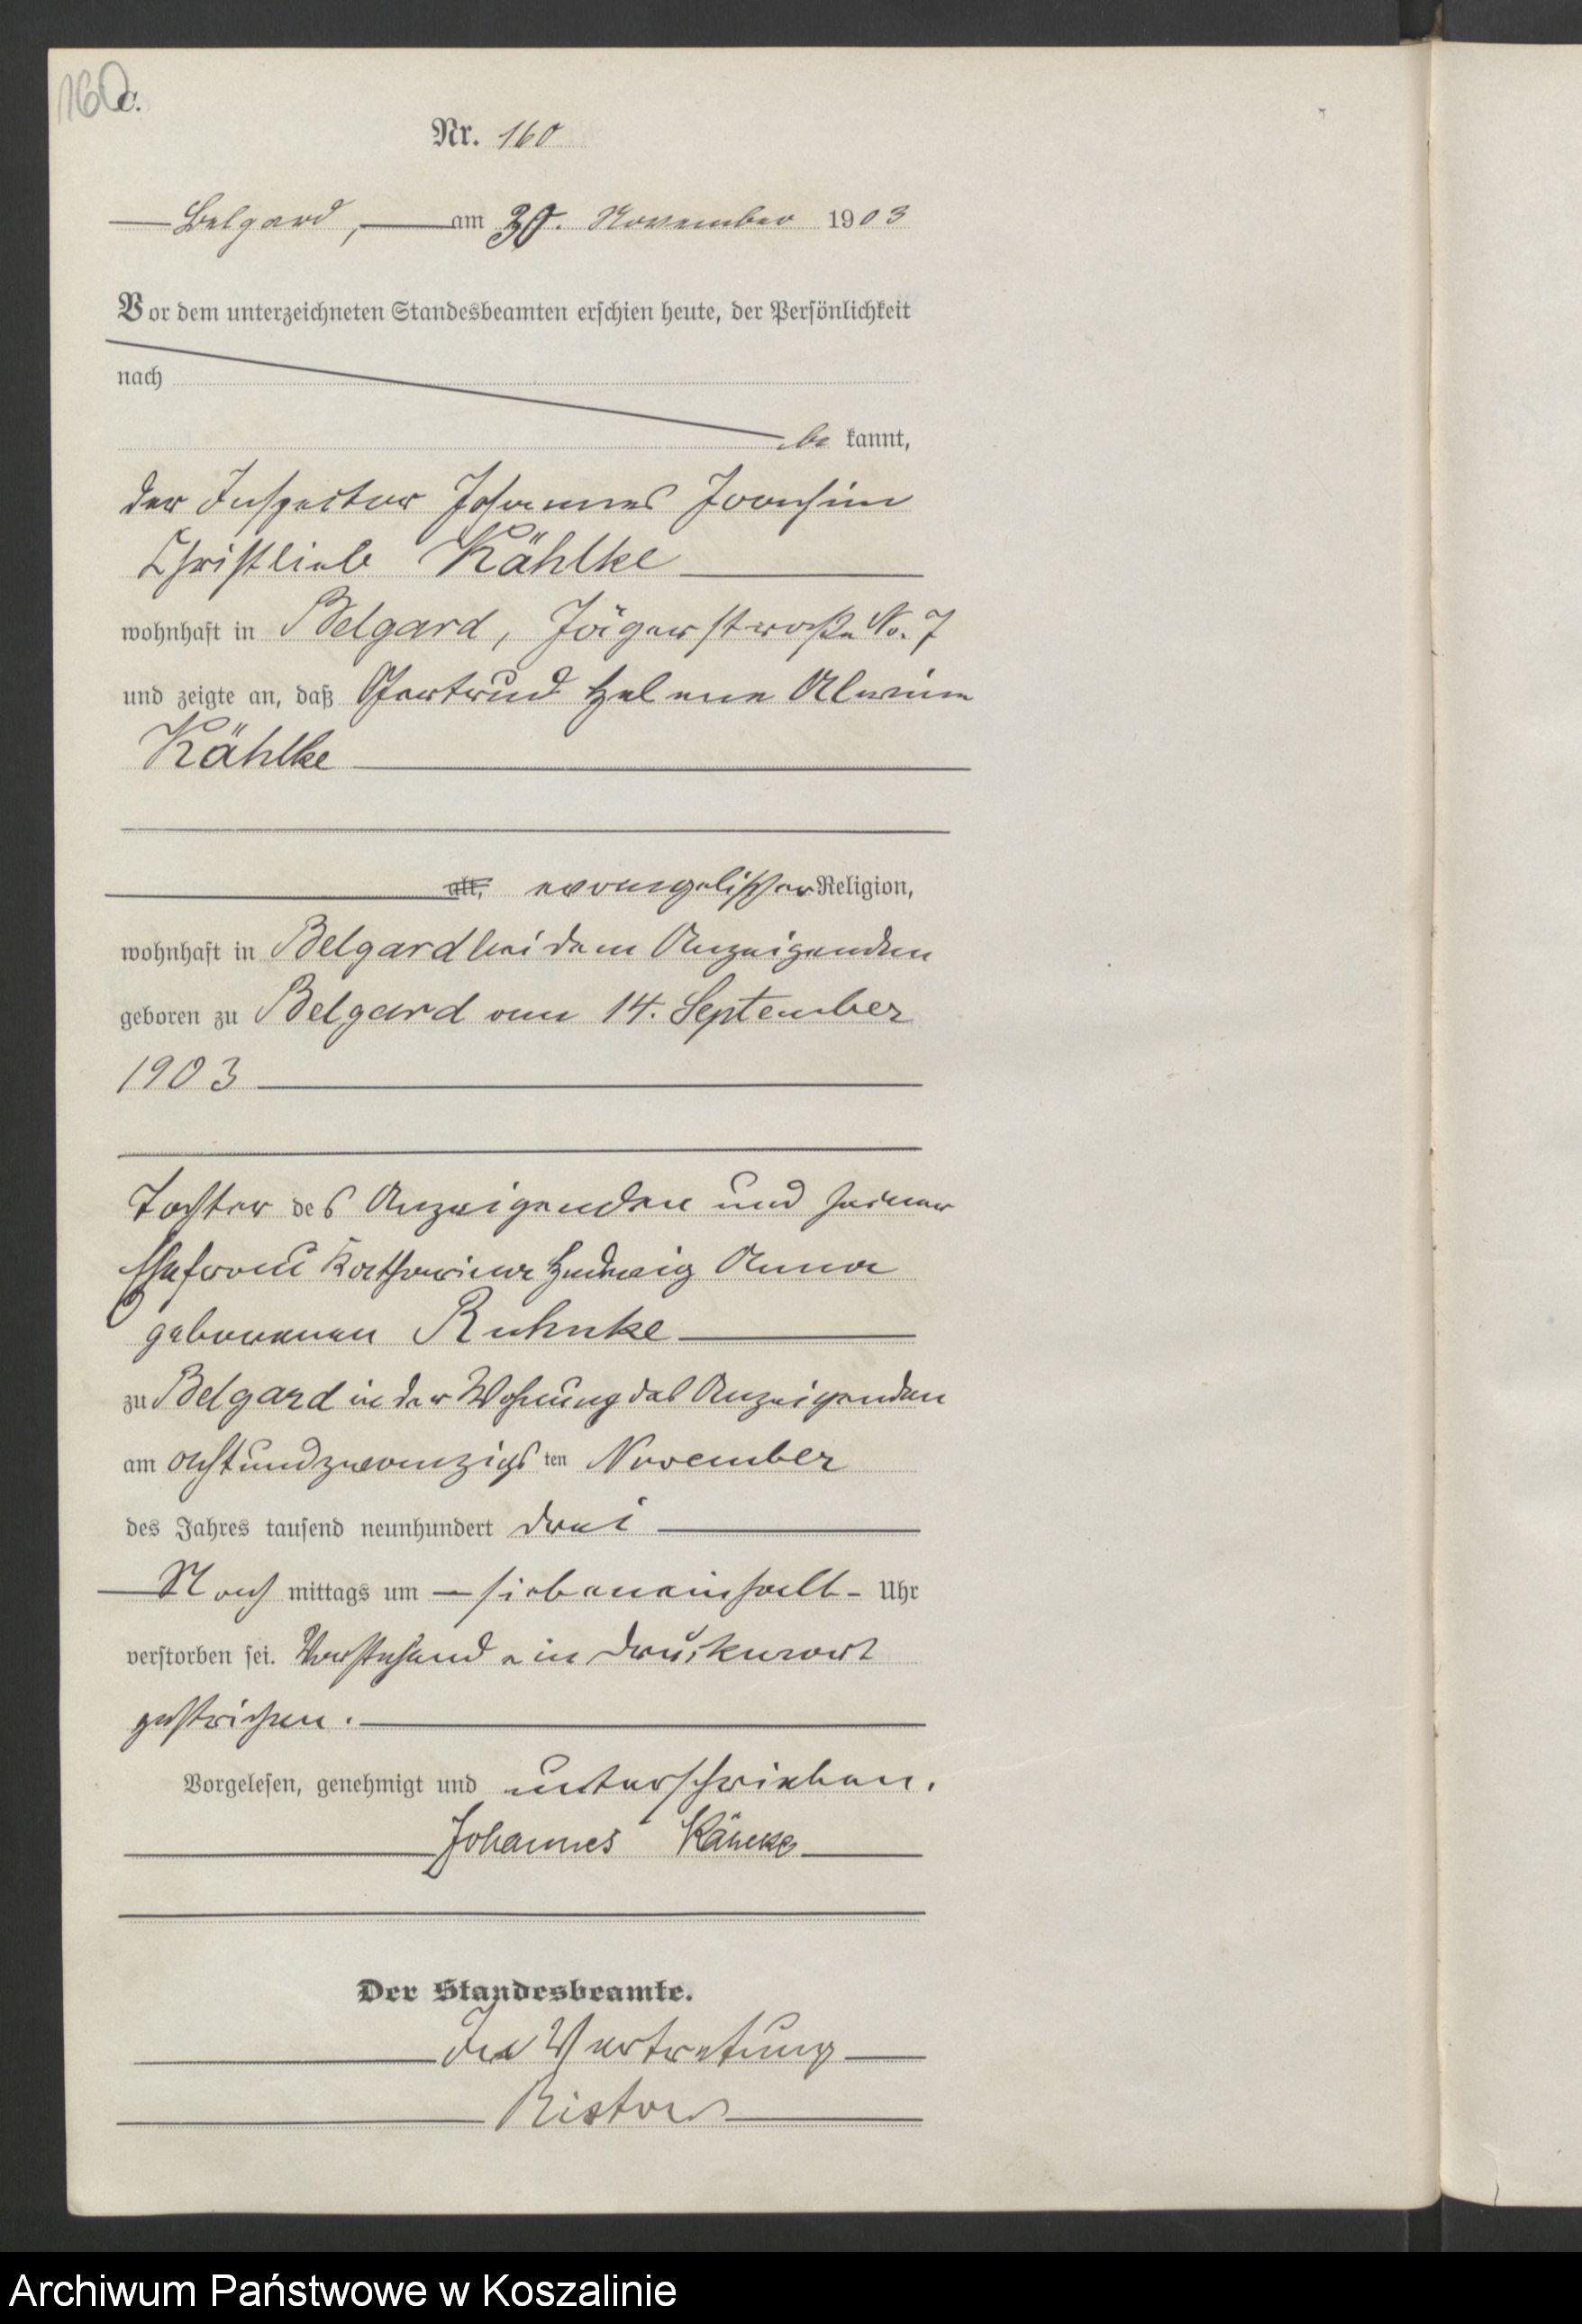 160
C.
Nr. 160
Belgard, am 30. November 1903
Vor dem unterzeichneten Standesbeamten erschien heute, der Persönlichkeit
nach
be kannt,
der Inspector Johannes Joachim
Christlieb Kählke
wohnhaft in Belgard, Jägerstraße No. 7
und zeigte an, daß Gertrud Helene Alwine
Kählke
alt, evangelischer Religion,
wohnhaft in Belgard bei dem Anzeigenden
geboren zu Belgard am 14. September
1903
Tochter des Anzeigenden und seiner
Ehefrau Katharina Hedwig Anna
geborenen Ruhnke
zu Belgard in der Wohnung des Anzeigenden
am achtundzwanzigsten November
des Jahres tausend neunhundert drei
Nachmittags um siebeneinhalb Uhr
verstorben sei. Vorstehend ein Druckwort
gestrichen.
Vorgelesen, genehmigt und unterschrieben.
Johannes
Der Standesbeamte.
In Vertretung
Ristow
Archiwum Państwowe w Koszalinie